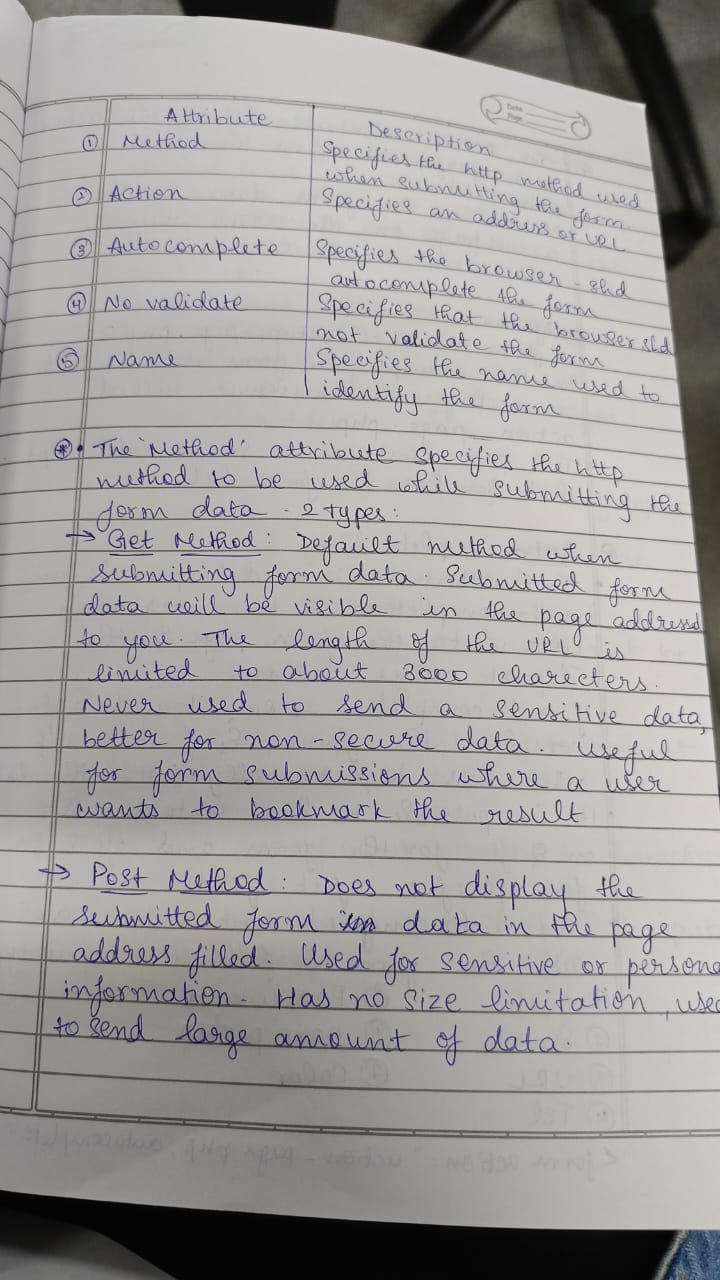 Date
Page
Attribute Description
① Method Specifies the http method used
when submitting the form
② Action Specifies an address or URL
③ Autocomplete Specifies the browser shd
autocomplete the form
④ No validate Specifies that the browser shd
not validate the form
⑤ Name Specifies the name used to
identify the form
• The 'Method' attribute specifies the http
method to be used while submitting the
form data. 2 types:
→ Get Method: Default method when
submitting form data. Submitted form
data will be visible in the page address
to you. The length of the URL is
limited to about 3000 charecters.
Never used to send a sensitive data,
better for non-secure data. useful
for form submissions where a user
wants to bookmark the result
→ Post Method: Does not display the
submitted form data in the page
address filled. Used for sensitive or persona
information. Has no size limitation, used
to send large amount of data.